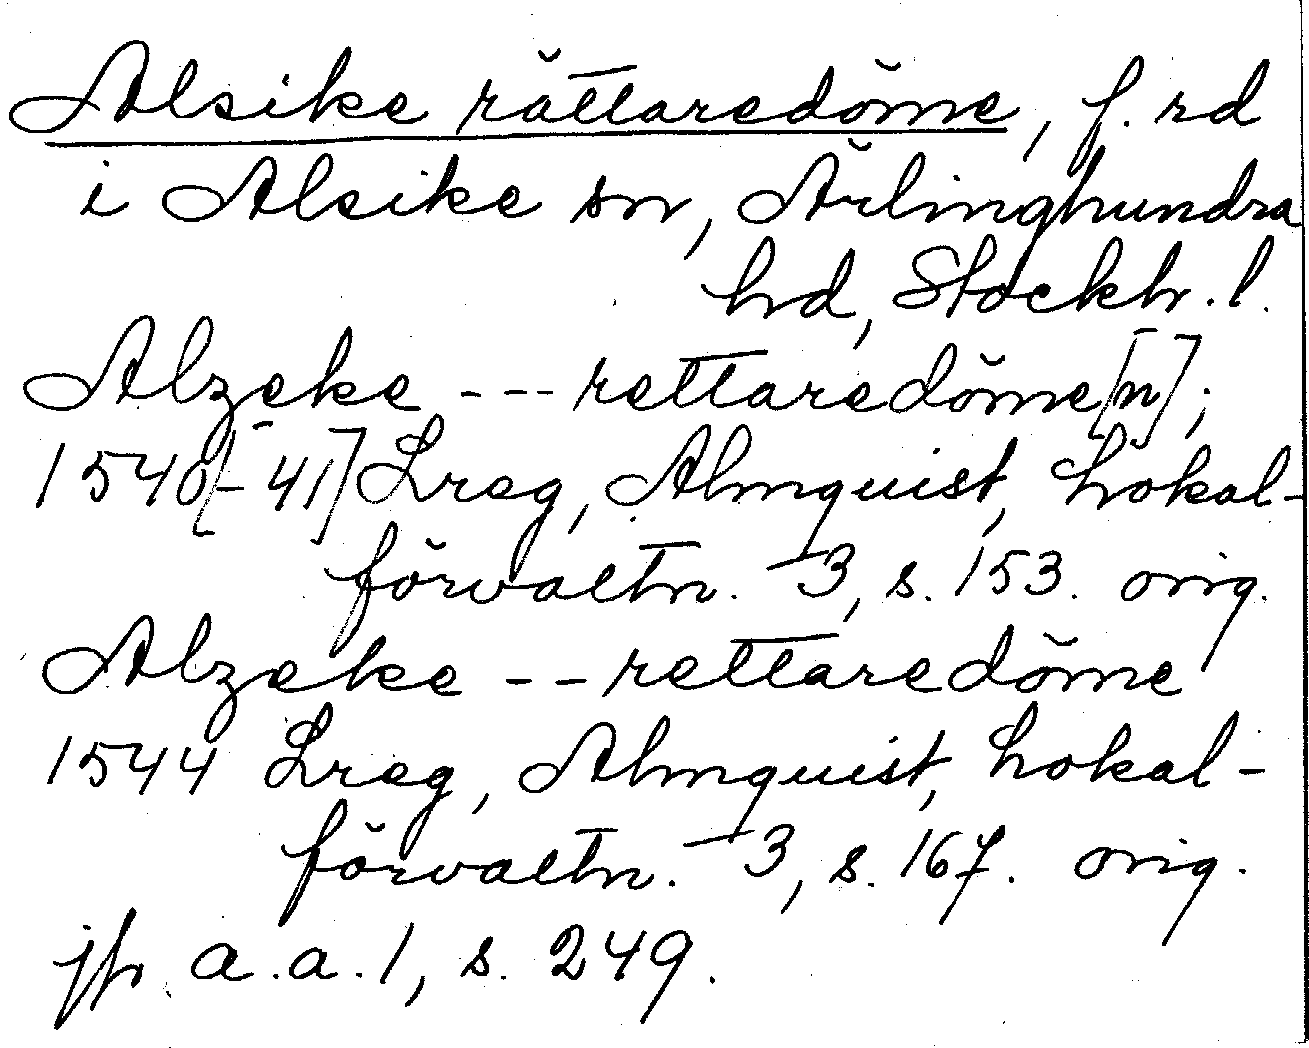 Alsike rättaredöme, f. rd
i Alsike sn, Ärlinghundra
hd, Stockh. l.
Alzeke --- rettaredöme[n];
1540[-41] Lreg, Almquist, Lokal-
förvaltn. 3, s. 153. orig.
Alzeke --- rettaredöme
1544 Lreg, Almquist, Lokal-
förvaltn. 3, s. 167. orig.
jfr a.a. 1, s. 249.